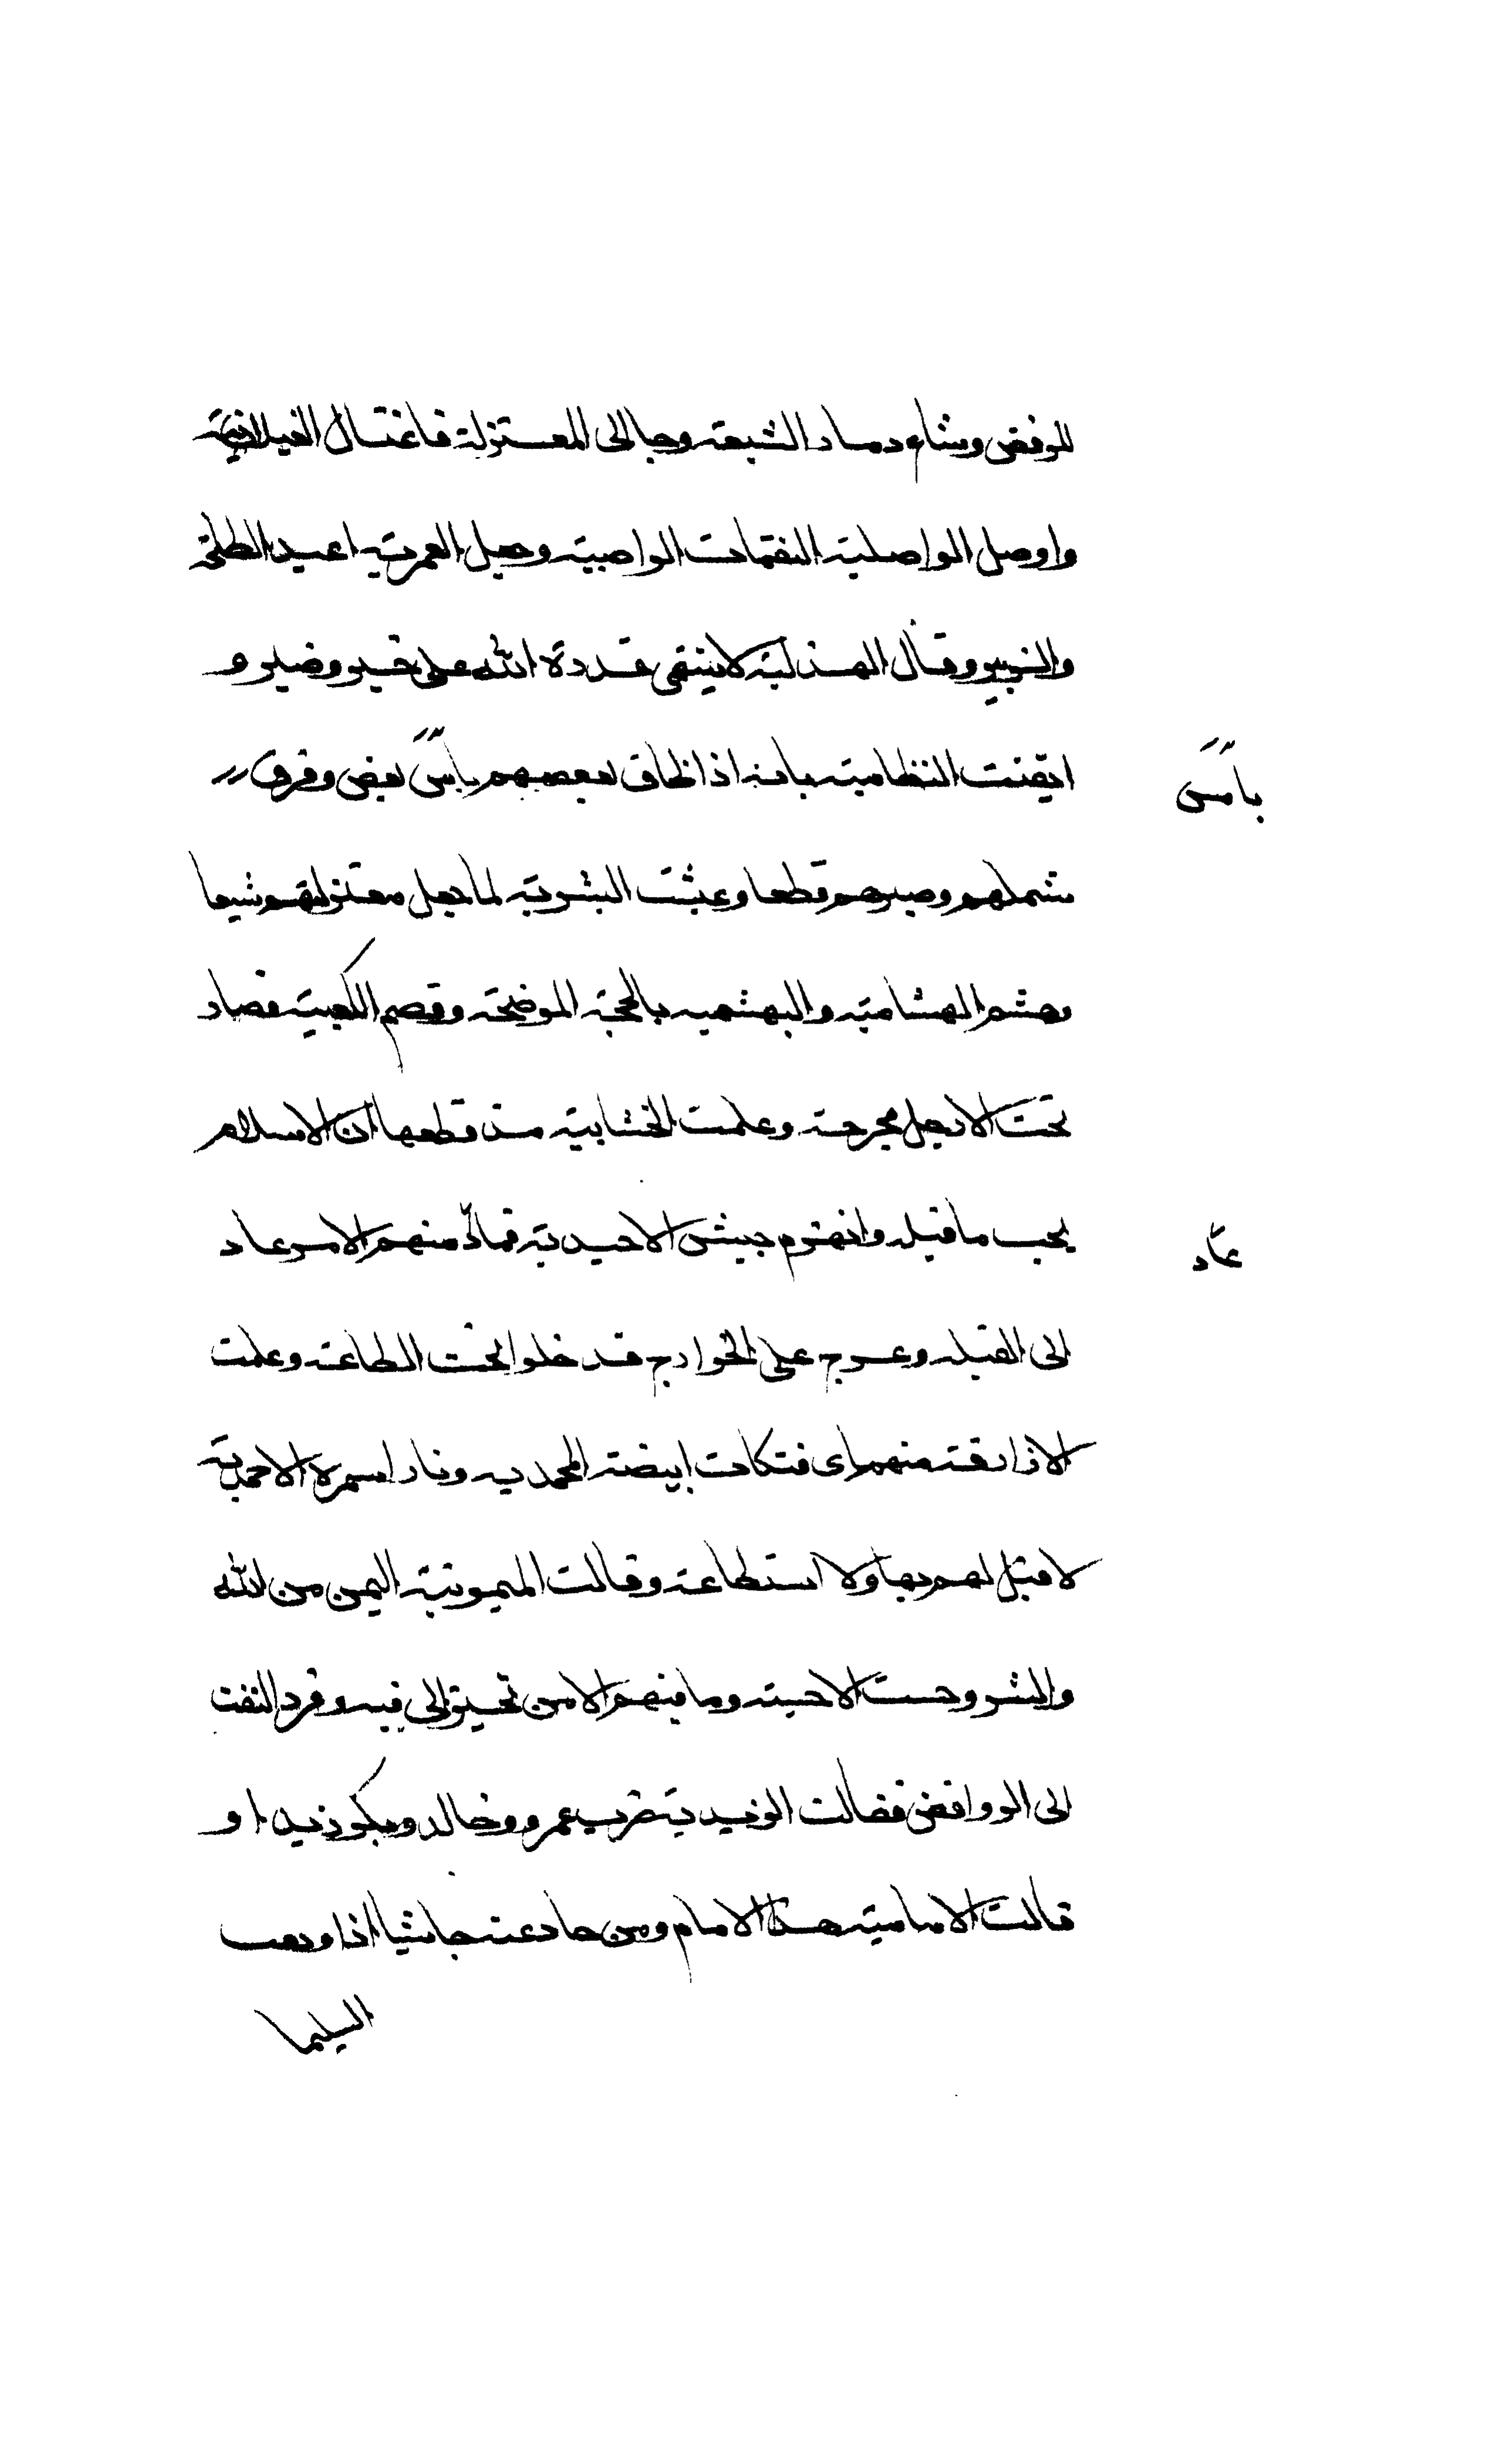 للرفض وشام دماد الشيعة وجا الى المعتزلة فاغتال الغيلانية
واوصل الواصلية النقمات الواصبية وحبل العمرية اعيد الطلخ
والخبيير وقال الهذلية لا ينتهى قدرة الله على خير وضير و
ايقنت النظامية بانه اذا ظاق بعضهم باس بعض وفرق
شملهم وصيرهم قطعا وعبثت البشرية لما جعل معتزلتهم شيعا
وهشم الهشامية والبهشمية بالحجة الموضحة وقصم الكعبية فصار
تحت الارجل مجرحة وعلمت الخشابية مذ قطعها ان الاسلام
يجب ما قبله وانهزم جيش الاحيدية فماد منهم الا من عاد
الى القبلة وعرج على الخوارج فدخلوا تحت الطاعة وعلمت
الازارقة منهم اى فتكات ابيضة المحمدية ونار اسمرة الاحمدية
لا قبل لهم بها ولا استطاعة وقالت الميمونية اليمن من الله
والشر وحست الاحبية وما منهم الا من تحيز الى فيه وفرد التفت
الى الروافض فقالت الزيدية ضرب عمرو وخالد وبكر زيدا و
قالت الامامية هذا الامام ومن حاد عنه جا شيا ادا وبعب
باس
عاد
السليما